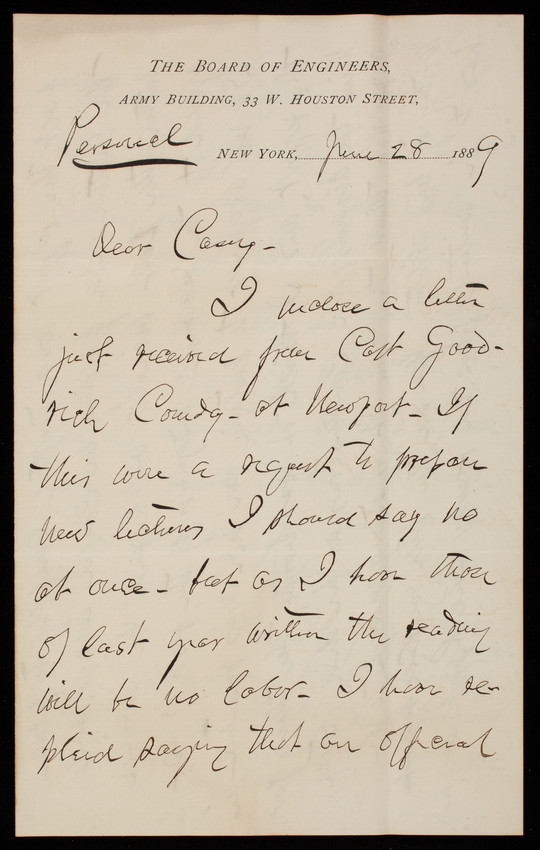 THE BOARD OF ENGINEERS,
ARMY BUILDING, 33 W. HOUSTON STREET,
Personal
NEW YORK, June 28 1889
Dear Casey-
I inclose a letter
just received from Capt Good-
rich Comdg- at Newport- If
this were a request to prepare
new lectures I should say no
at once- but as I have those
of last year written the reading
will be no labor- I have re-
plied saying that an official